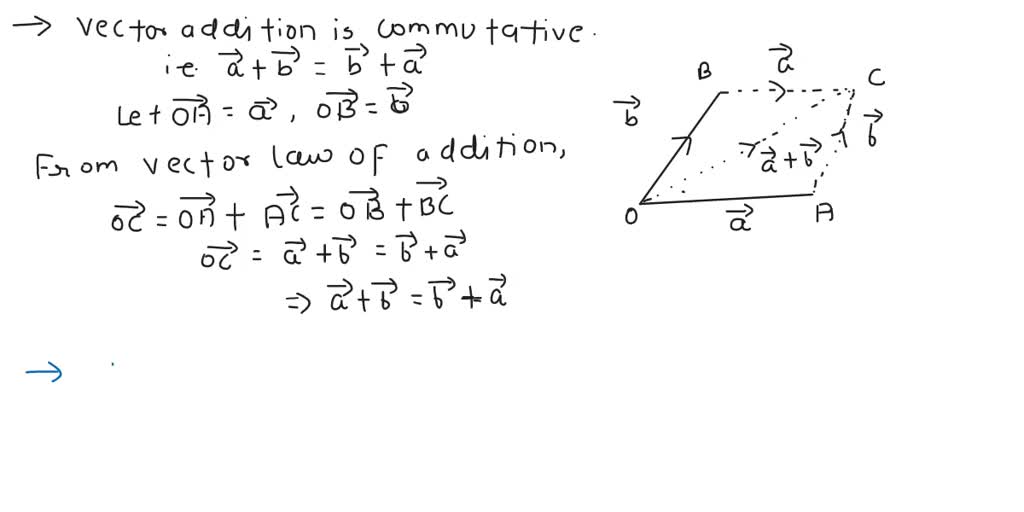 → Vector addition is commutative.
i.e. a⃗ + b⃗ = b⃗ + a⃗
Let OA⃗ = a⃗, OB⃗ = b⃗
From vector law of addition,
OC⃗ = OA⃗ + AC⃗ = OB⃗ + BC⃗
OC⃗ = a⃗ + b⃗ = b⃗ + a⃗
⇒ a⃗ + b⃗ = b⃗ + a⃗
→
B a⃗ C
b⃗ b⃗
a⃗ + b⃗
O a⃗ A